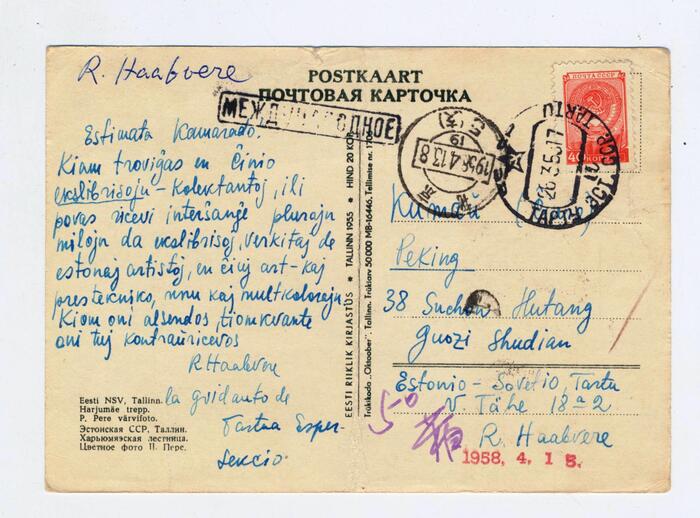 R. Haabvere
POSTKAART
ПОЧТОВАЯ КАРТОЧКА
МЕЖДУНАРОДНОЕ
Estimata Kamarado.
Kiam troviĝas en Ĉinio
exlibrisoju - kolektantoj, ili
povas ricevi interŝanĝe plurajn
milojn da exlibrisoj, verkitaj de
estonaj artistoj, en ĉiuj art- kaj
presteknikoj, unu kaj multkoloraju
Kiom oni alsendos, tiom kvante
oni tuj kontraŭricevos
R Haabvere
la gvidanto de
Tartua Esper-
Sekcio.
Eesti NSV, Tallinn.
Harjumäe trepp.
P. Pere värvifoto.
Эстонская ССР, Таллин.
Харьюмяэская лестница.
Цветное фото П. Пере.
EESTI RIIKLIK KIRJASTUS ★ TALLINN 1955 ★ HIND 20 KOP.
Trükikoda „Oktoober”. Tallinn. Trükiarv 50 000 MB-16446. Tellimise nr. 170
ПОЧТА СССР
40 КОП
TARTU
1956.4.13.8
19
京
Peking
38 Suchow Hutang
Guozi Shudian
Estonio - Sovetio, Tartu
V. Tähe 18ª - 2
R. Haabvere
50
1958. 4. 1 5.